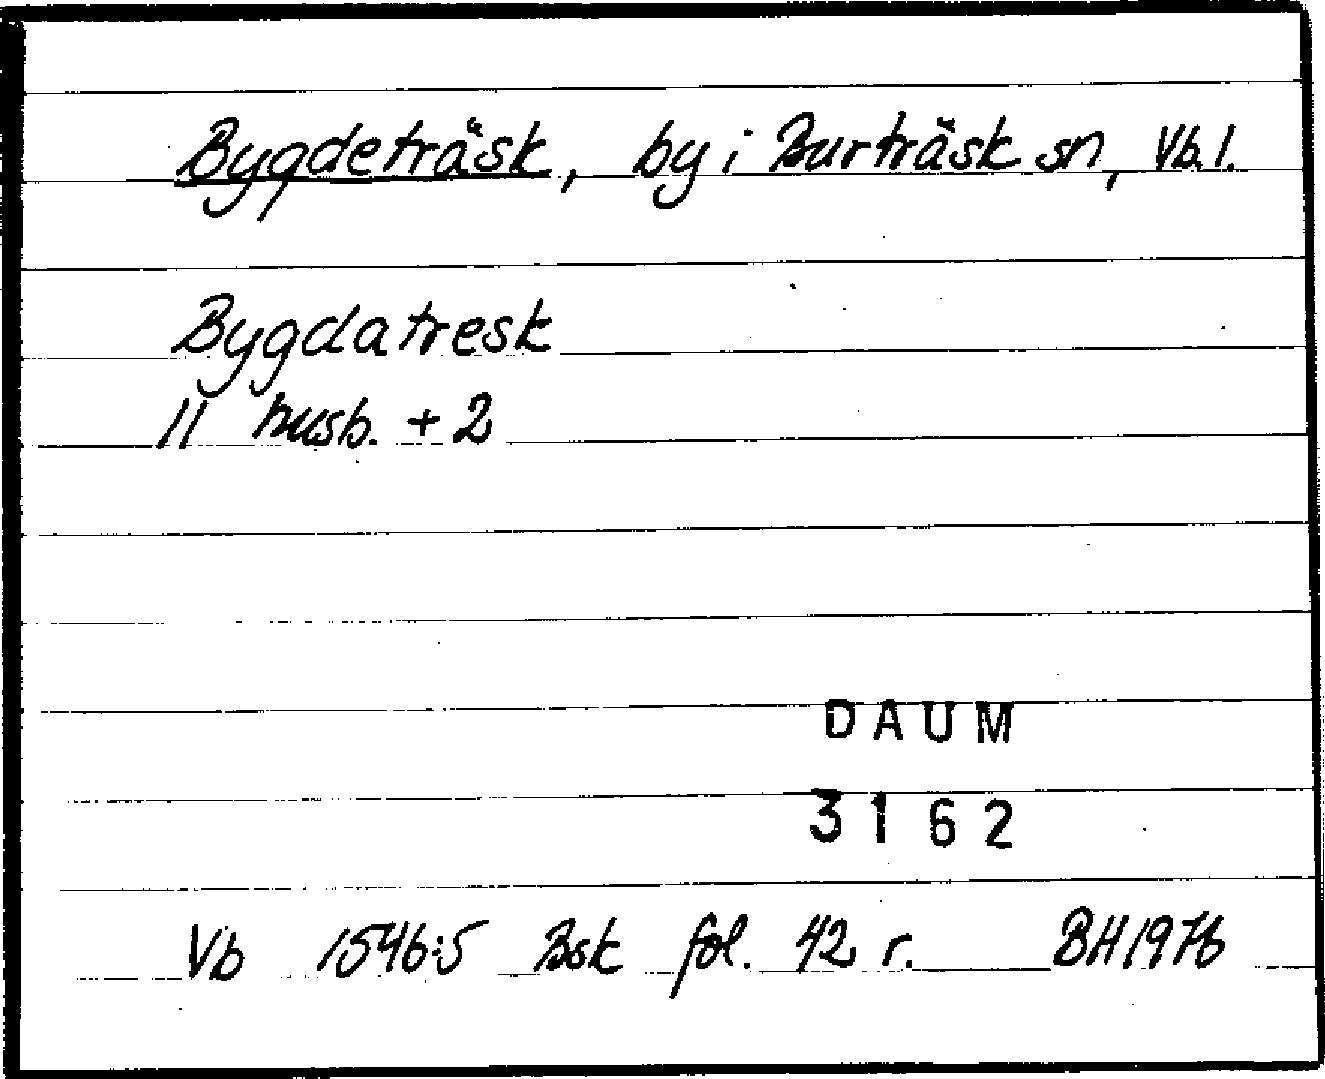 Bygdeträsk, by i Burträsk sn, Vb. l.
Bygdatresk
11 husb. + 2
DAUM
3162
Vb 1546:5 Bsk fol. 42 r. BH 1976